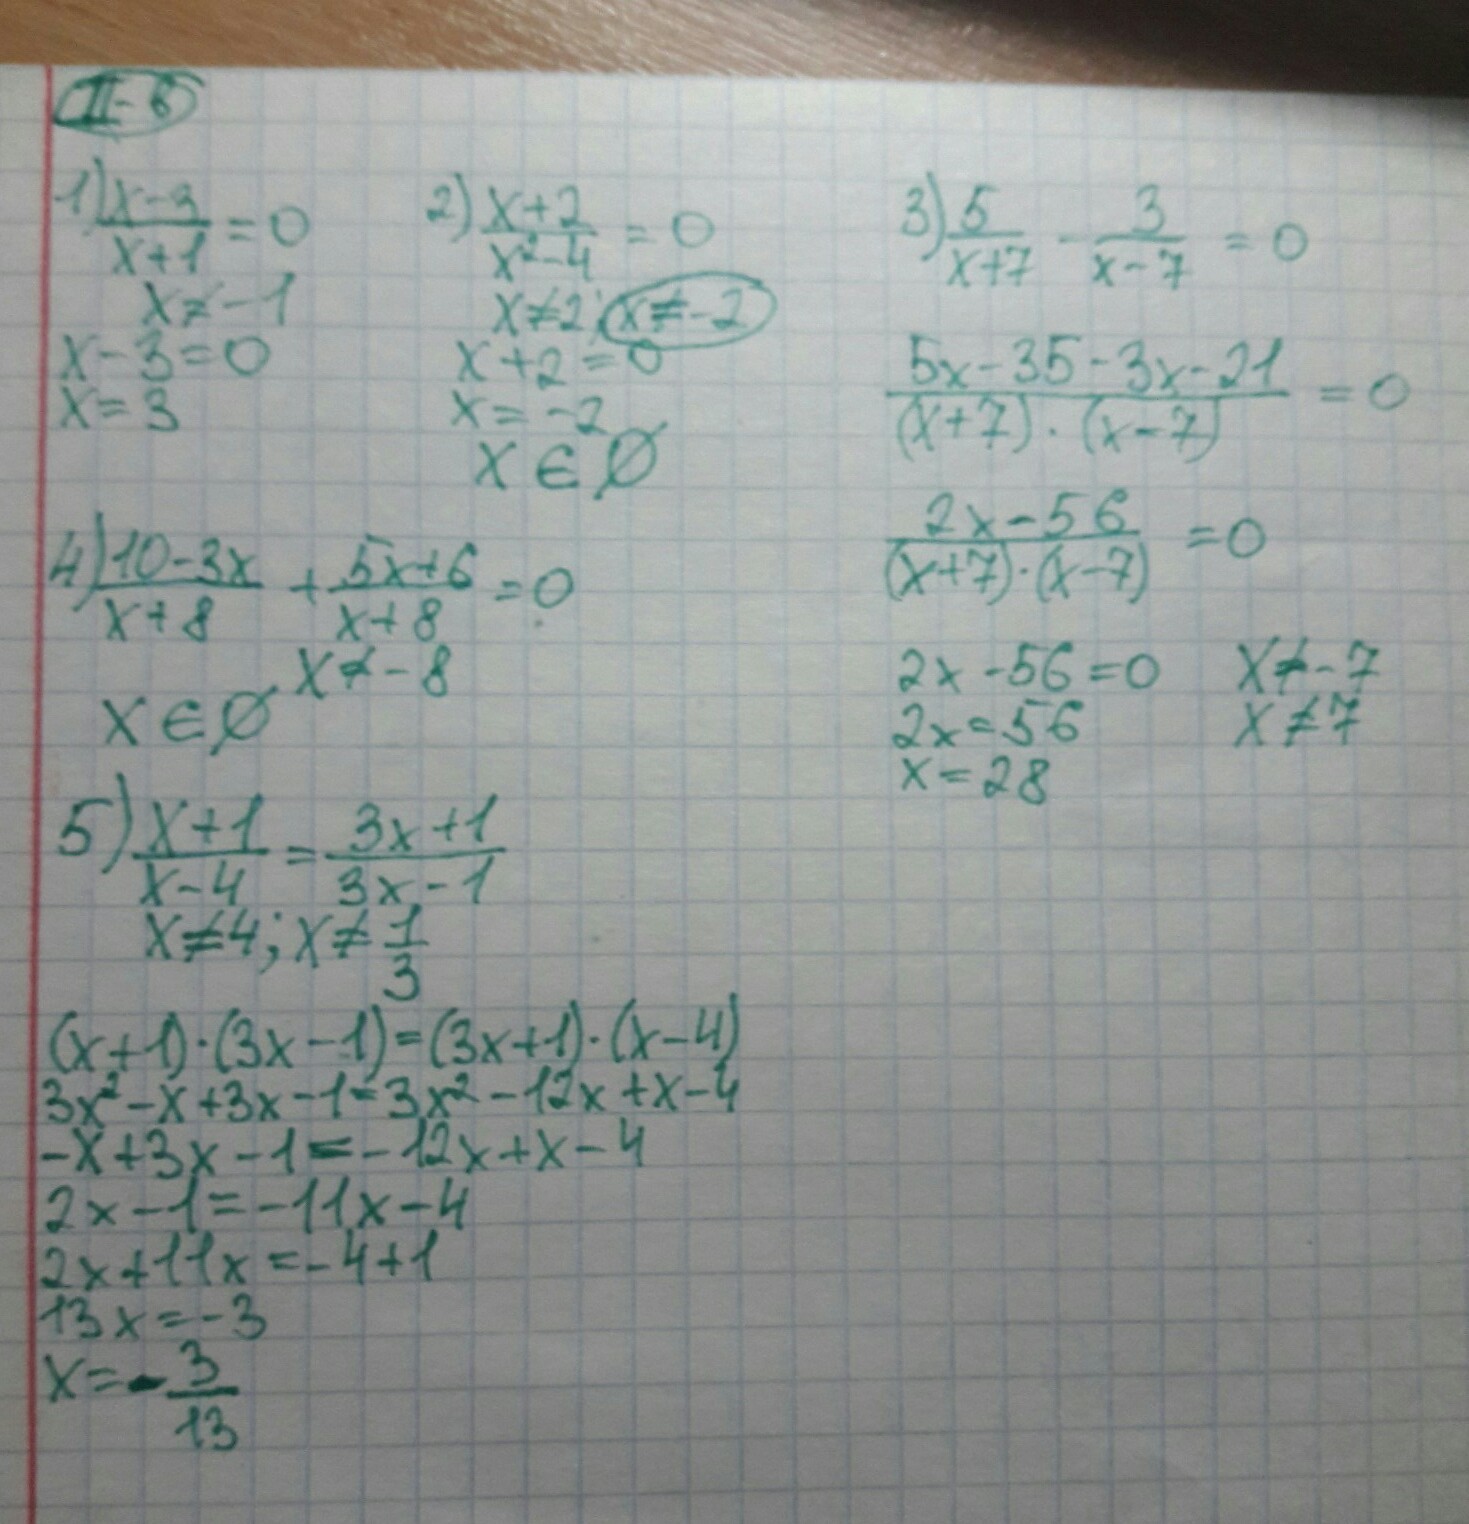 II-в
1) (x-3)/(x+1) = 0
x ≠ -1
x - 3 = 0
x = 3
2) (x+2)/(x²-4) = 0
x ≠ 2; x ≠ -2
x + 2 = 0
x = -2
x ∈ ∅
3) 5/(x+7) - 3/(x-7) = 0
(5x-35-3x-21)/((x+7)·(x-7)) = 0
(2x-56)/((x+7)·(x-7)) = 0
2x - 56 = 0 x ≠ -7
2x = 56 x ≠ 7
x = 28
4) (10-3x)/(x+8) + (5x+6)/(x+8) = 0
x ≠ -8
x ∈ ∅
5) (x+1)/(x-4) = (3x+1)/(3x-1)
x ≠ 4; x ≠ 1/3
(x+1)·(3x-1)=(3x+1)·(x-4)
3x²-x+3x-1=3x²-12x+x-4
-x+3x-1=-12x+x-4
2x-1=-11x-4
2x+11x=-4+1
13x=-3
x=-3/13